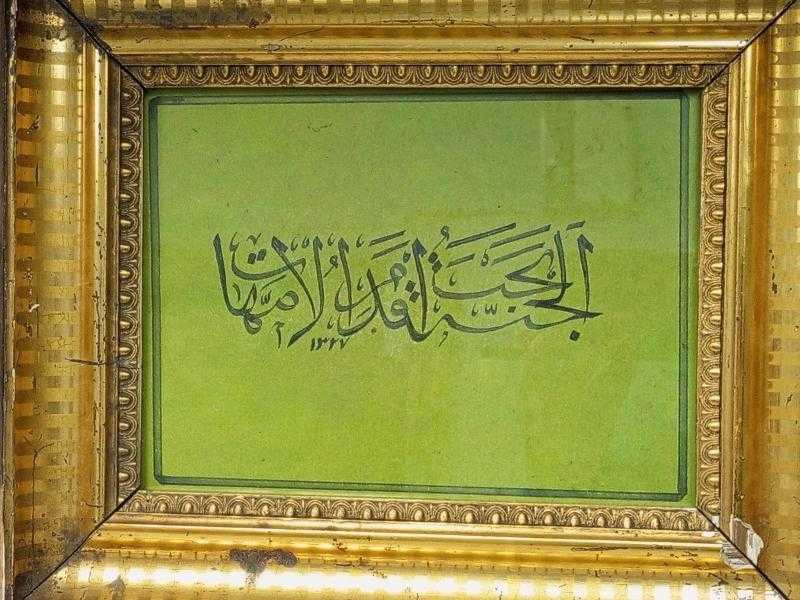 الجنة تحت اقدام الامهات
١٣٢٧